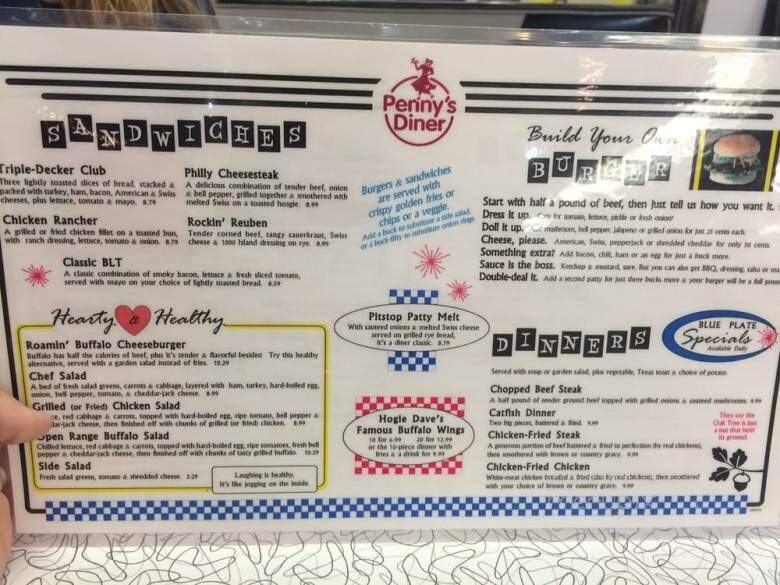 Penny's
Diner
SANDWICHES
Triple-Decker Club
Three lightly toasted slices of bread, stacked &
packed with turkey, ham, bacon, American & Swiss
cheeses, plus lettuce, tomato & mayo. 8.79
Chicken Rancher
A grilled or fried chicken fillet on a toasted bun,
with ranch dressing, lettuce, tomato & onion. 8.79
Philly Cheesesteak
A delicious combination of tender beef, onion
& bell pepper, grilled together & smothered with
melted Swiss on a toasted hoagie. 8.99
Rockin' Reuben
Tender corned beef, tangy sauerkraut, Swiss
cheese & 1000 Island dressing on rye. 8.99
Classic BLT
A classic combination of smoky bacon, lettuce & fresh sliced tomato,
served with mayo on your choice of lightly toasted bread. 8.59
Burgers & sandwiches
are served with
crispy golden fries or
chips or a veggie.
Add a buck to substitute a side salad,
or a buck-fifty to substitute onion rings.
Build Your Own
BURGER
Start with half a pound of beef, then just tell us how you want it.
Dress it up. Care for tomato, lettuce, pickle or fresh onion?
Doll it up. Add mushroom, bell pepper, jalapeno or grilled onion for just 25 cents each.
Cheese, please. American, Swiss, pepperjack or shredded cheddar for only 50 cents.
Something extra? Add bacon, chili, ham or an egg for just a buck more.
Sauce is the boss. Ketchup & mustard, sure. But you can also get BBQ, dressing, salsa or
Double-deal it. Add a second patty for just three bucks more & your burger will be a full
Hearty & Healthy
Roamin' Buffalo Cheeseburger
Buffalo has half the calories of beef, plus it's tender & flavorful besides! Try this healthy
alternative, served with a garden salad instead of fries. 10.29
Chef Salad
A bed of fresh salad greens, carrots & cabbage, layered with ham, turkey, hard-boiled egg,
onion, bell pepper, tomato, & cheddar-jack cheese. 8.99
Grilled (or Fried) Chicken Salad
red cabbage & carrots, topped with hard-boiled egg, ripe tomato, bell pepper &
-jack cheese, then finished off with chunks of grilled (or fried) chicken. 8.99
Open Range Buffalo Salad
Chilled lettuce, red cabbage & carrots, topped with hard-boiled egg, ripe tomatoes, fresh bell
pepper & cheddar-jack cheese, then finished off with chunks of tasty grilled buffalo. 10.29
Side Salad
Fresh salad greens, tomato & shredded cheese. 3.29
Laughing is healthy.
It's like jogging on the inside.
Pitstop Patty Melt
With sauteed onions & melted Swiss cheese
served on grilled rye bread,
it's a diner classic. 8.79
Hogie Dave's
Famous Buffalo Wings
10 for 6.99 20 for 12.99
or the 10-piece dinner with
fries & a drink for 9.99
DINNERS
BLUE PLATE
Specials
Available Daily
Served with soup or garden salad, plus vegetable, Texas toast & choice of potato.
Chopped Beef Steak
A half pound of tender ground beef topped with grilled onions & sauteed mushrooms. 9.99
Catfish Dinner
Two big pieces, battered & fried. 9.99
Chicken-Fried Steak
A generous portion of beef battered & fried to perfection (by real chickens),
then smothered with brown or country gravy. 9.99
Chicken-Fried Chicken
White-meat chicken breaded & fried (also by real chickens), then smothered
with your choice of brown or country gravy. 9.99
They say the
Oak Tree is just
a nut that held
its ground.